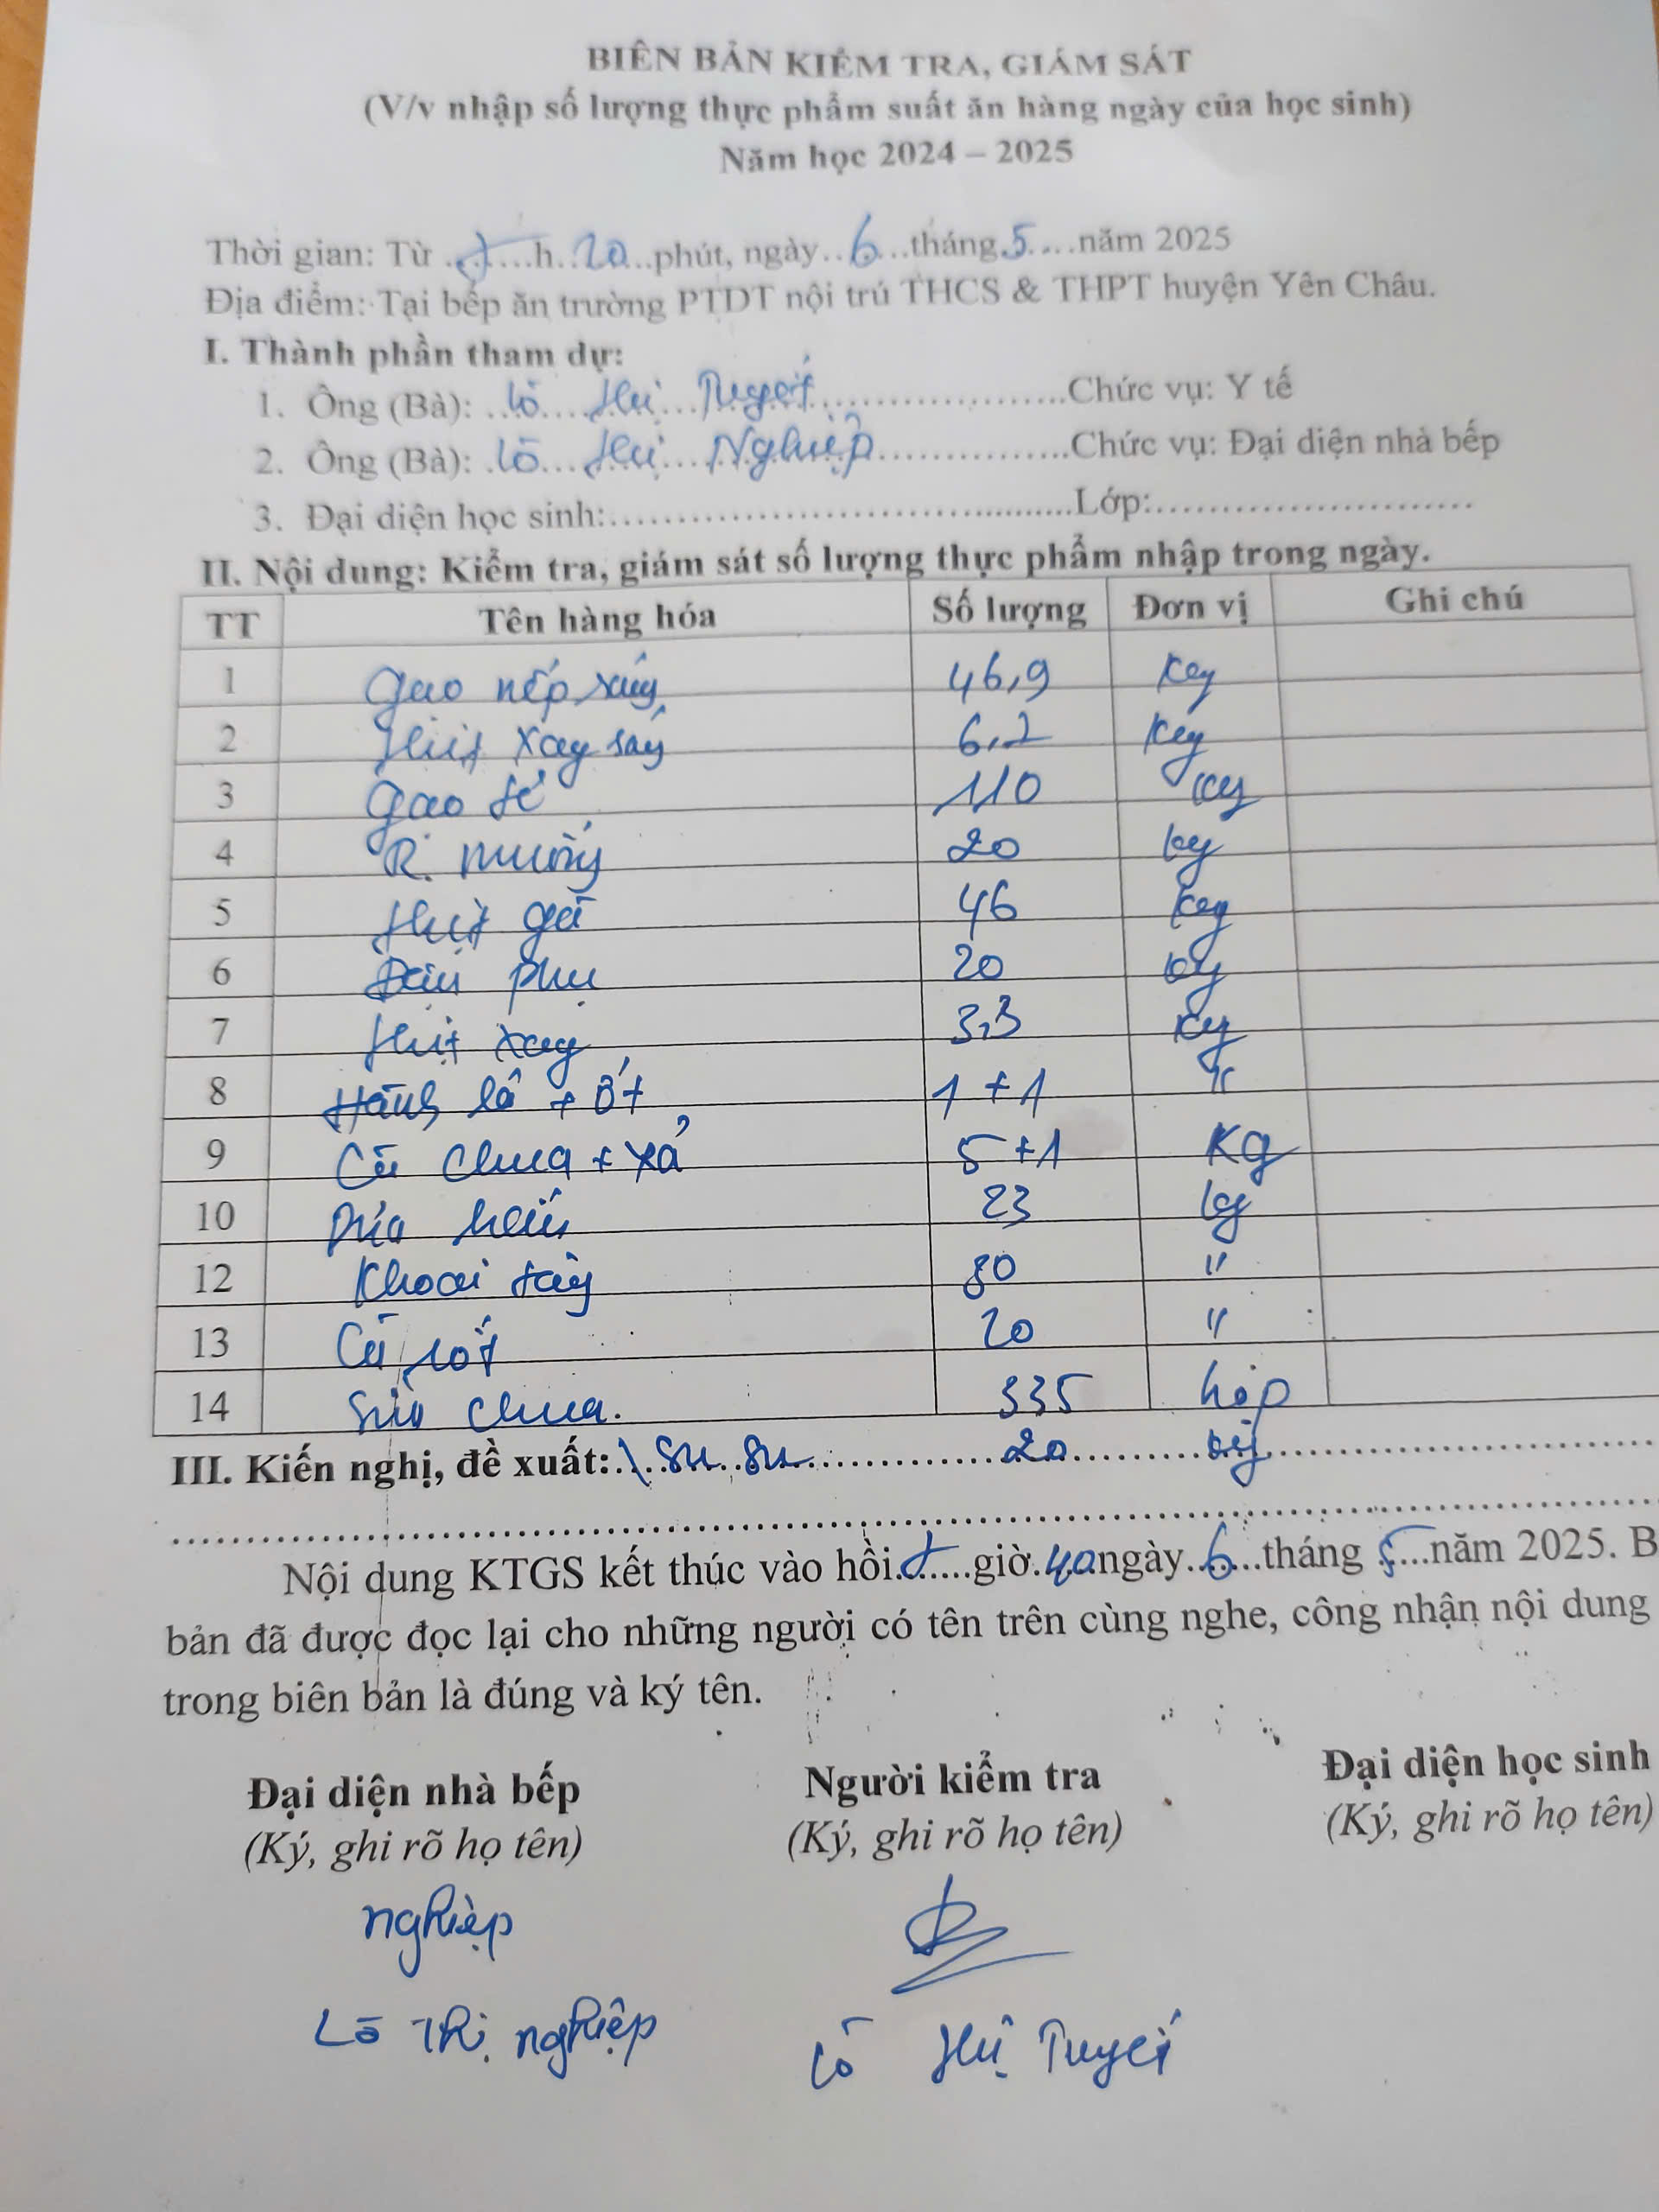 BIÊN BẢN KIỂM TRA, GIÁM SÁT
(V/v nhập số lượng thực phẩm suất ăn hàng ngày của học sinh)
Năm học 2024 – 2025
Thời gian: Từ ......h..20...phút, ngày..6...tháng.5....năm 2025
Địa điểm: Tại bếp ăn trường PTDT nội trú THCS & THPT huyện Yên Châu.
I. Thành phần tham dự:
1. Ông (Bà): ..Lò...Thị...Tuyết........................Chức vụ: Y tế
2. Ông (Bà): .Lò...Thị...Nghiệp................Chức vụ: Đại diện nhà bếp
3. Đại diện học sinh:.......................................Lớp:........................
II. Nội dung: Kiểm tra, giám sát số lượng thực phẩm nhập trong ngày.
TT Tên hàng hóa Số lượng Đơn vị Ghi chú
1 Gạo nếp 46,9 kg
2 Thịt xay sáng 6,2 kg
3 Gạo tẻ 110 kg
4 R. muống 20 kg
5 Thịt gà 46 kg
6 Đậu phụ 20 kg
7 Thịt xay 3,3 kg
8 Hành lá + ớt 1 + 1 "
9 Cà chua + xả 5 + 1 Kg
10 Dưa hấu 23 kg
12 Khoai tây 80 "
13 Cà rốt 20 "
14 Sữa chua. 335 hộp
III. Kiến nghị, đề xuất:. su su 20 kg
Nội dung KTGS kết thúc vào hồi.......giờ.40.ngày..6...tháng 5...năm 2025. B
bản đã được đọc lại cho những người có tên trên cùng nghe, công nhận nội dung
trong biên bản là đúng và ký tên.
Đại diện nhà bếp Người kiểm tra Đại diện học sinh
(Ký, ghi rõ họ tên) (Ký, ghi rõ họ tên) (Ký, ghi rõ họ tên)
Nghiệp
Lò Thị Nghiệp Lò Thị Tuyết